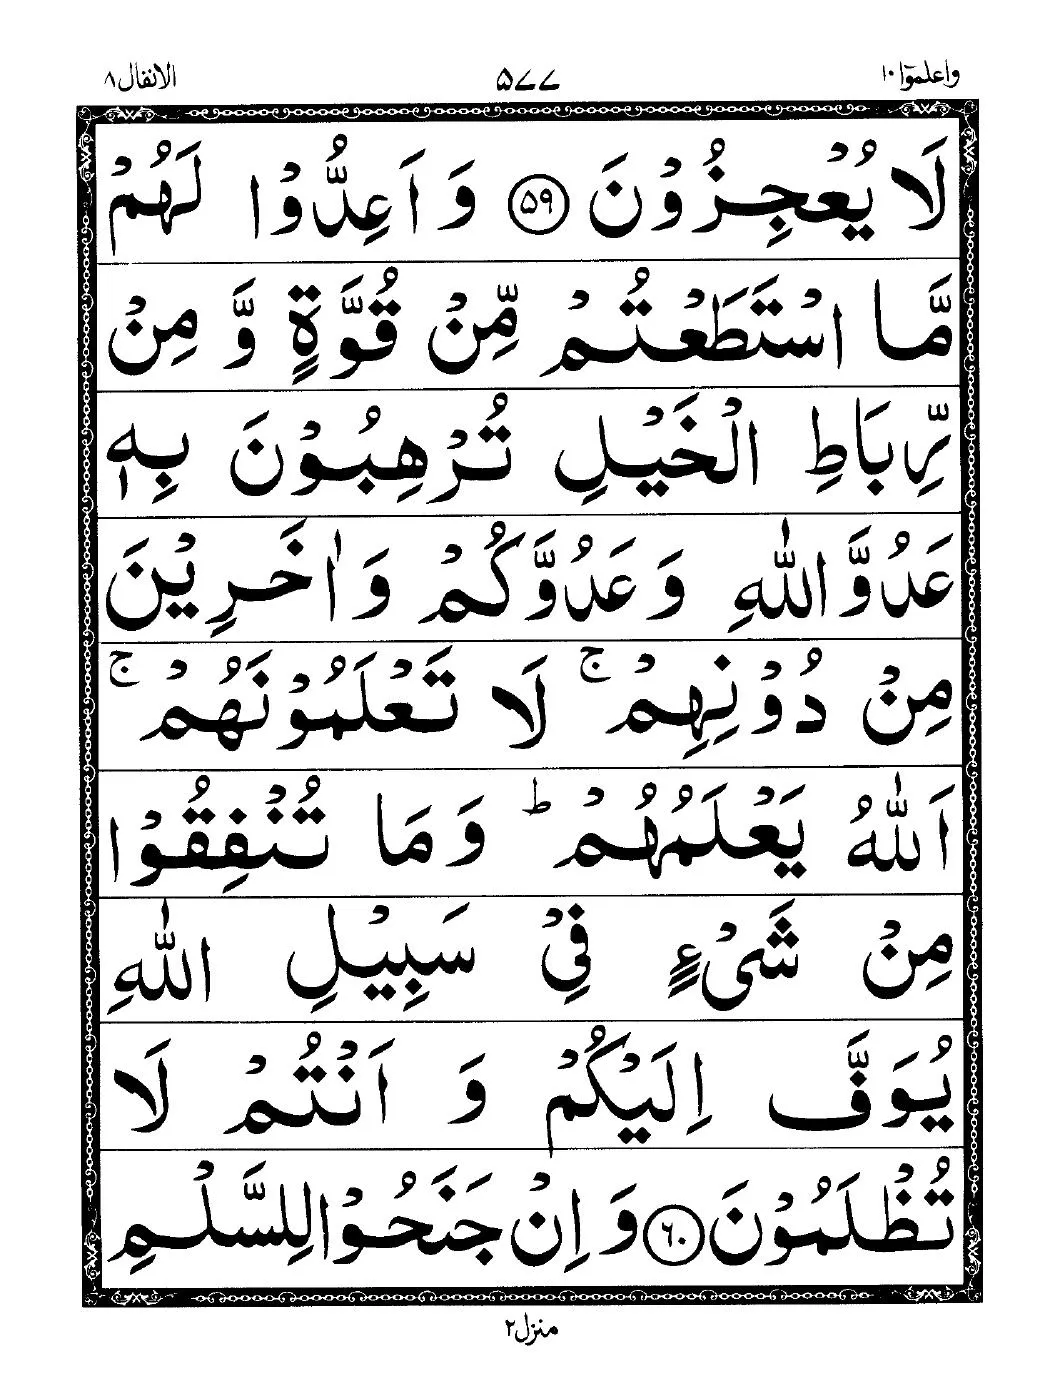 واعلموۤا ۱۰ ۵۷۷ الانفال ۸
لَا يُعْجِزُوْنَ ۵۹ وَ اَعِدُّوْا لَهُمْ
مَّا اسْتَطَعْتُمْ مِّنْ قُوَّةٍ وَّ مِنْ
رِّبَاطِ الْخَيْلِ تُرْهِبُوْنَ بِهٖ
عَدُوَّ اللّٰهِ وَ عَدُوَّكُمْ وَ اٰخَرِيْنَ
مِنْ دُوْنِهِمْ ۚ لَا تَعْلَمُوْنَهُمْ ۚ
اَللّٰهُ يَعْلَمُهُمْ ؕ وَ مَا تُنْفِقُوْا
مِنْ شَیْءٍ فِیْ سَبِيْلِ اللّٰهِ
يُوَفَّ اِلَيْكُمْ وَ اَنْتُمْ لَا
تُظْلَمُوْنَ ۶۰ وَ اِنْ جَنَحُوْا لِلسَّلْمِ
منزل ۲